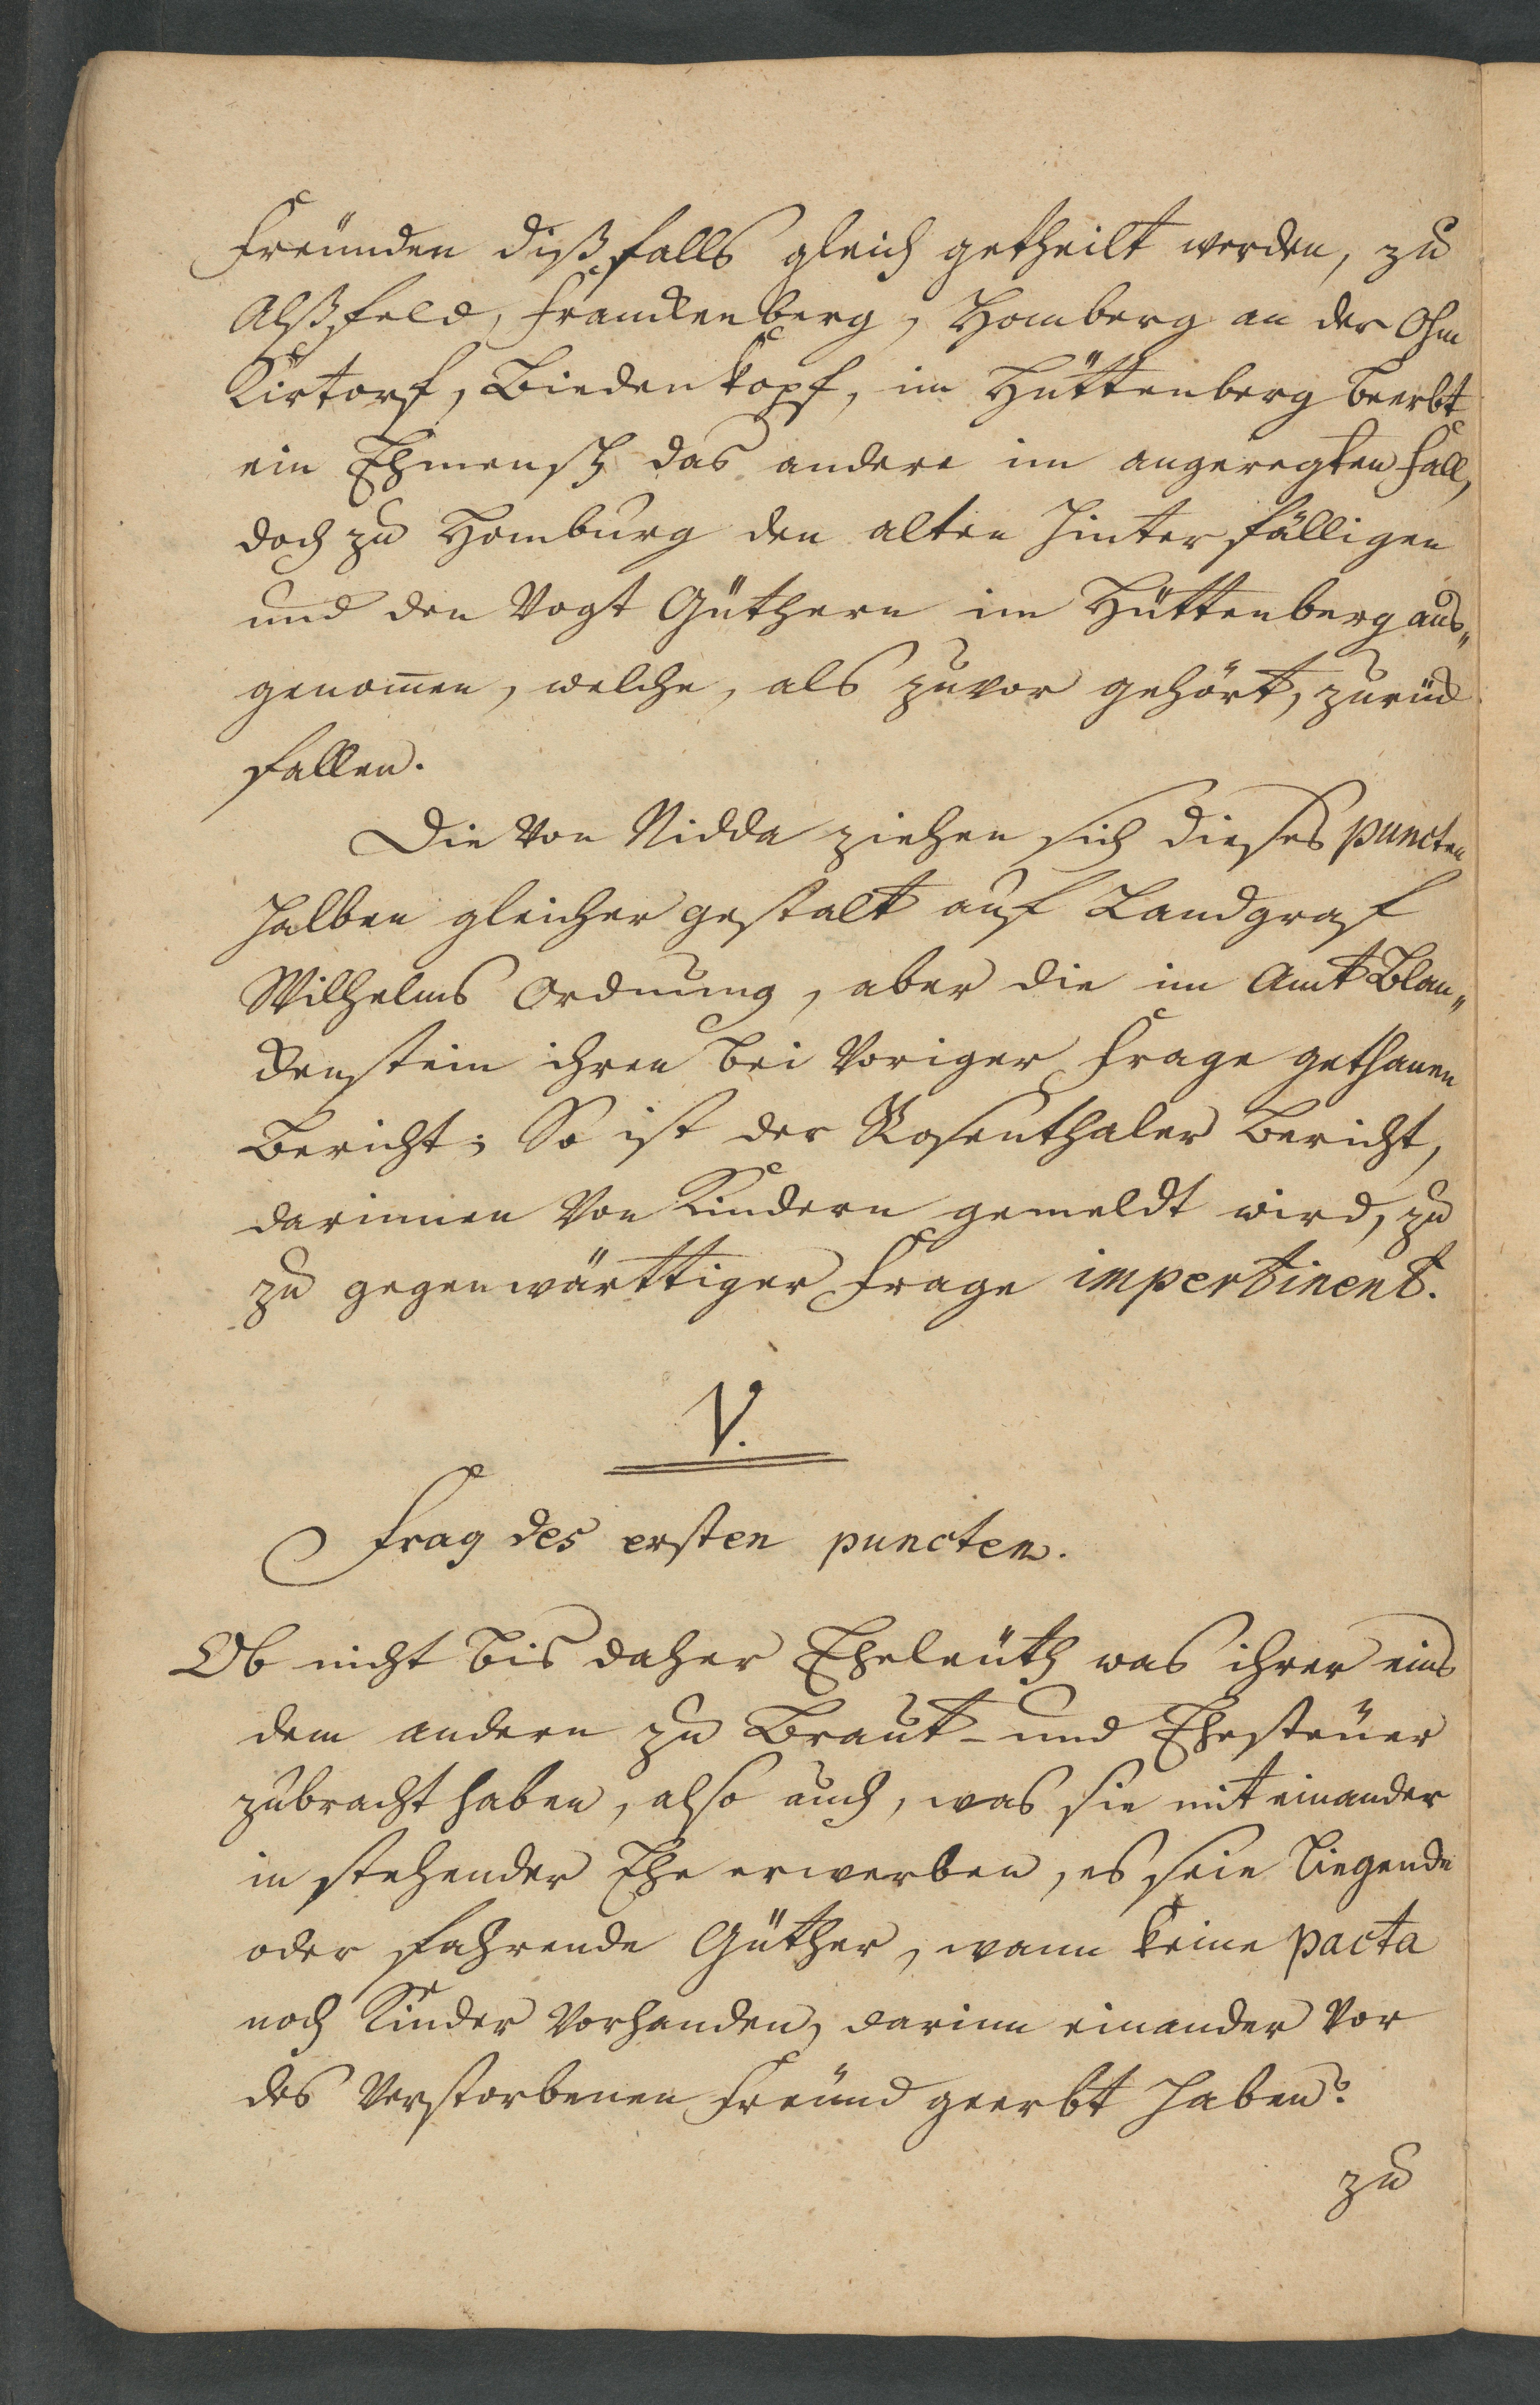 Freünden dißfalls gleich getheilt werden, zu
Alßfeld, Franckenberg, Homberg an der Ohm
Kirtorf, Biedenkopf, im Hüttenberg beerbt
ein Ehmensch das andere im angeregten Fall,
doch zu Homburg den alten hinterfälligen
und den Vogt Güthern im Hüttenberg aus„
genom̅en, welche, als zuvor gehört, zurück
fallen.
Die von Nidda ziehen sich dieses puncten
halben gleicher gestalt auf Landgraf
Wilhelms Ordnung, aber die im Amt Blan„
ckenstein ihren bei voriger Frage gethanen
Bericht; So ist der Rosenthaler Bericht,
darinnen von Kindern gemeldt wird, zu
zu gegenwärttiger Frage impertinent.
V.
Frag des ersten puncten.
Ob nicht bis daher Eheleüth was ihrer eins
dem andern zu Braut- und Ehesteüer
zubracht haben, also auch, was sie mit einander
in stehender Ehe erwerben, es seie liegende
oder fahrende Güther, wann keine pacta
noch Kinder vorhanden, darinn einander vor
des Verstorbenen Freünd geerbt haben?
zu